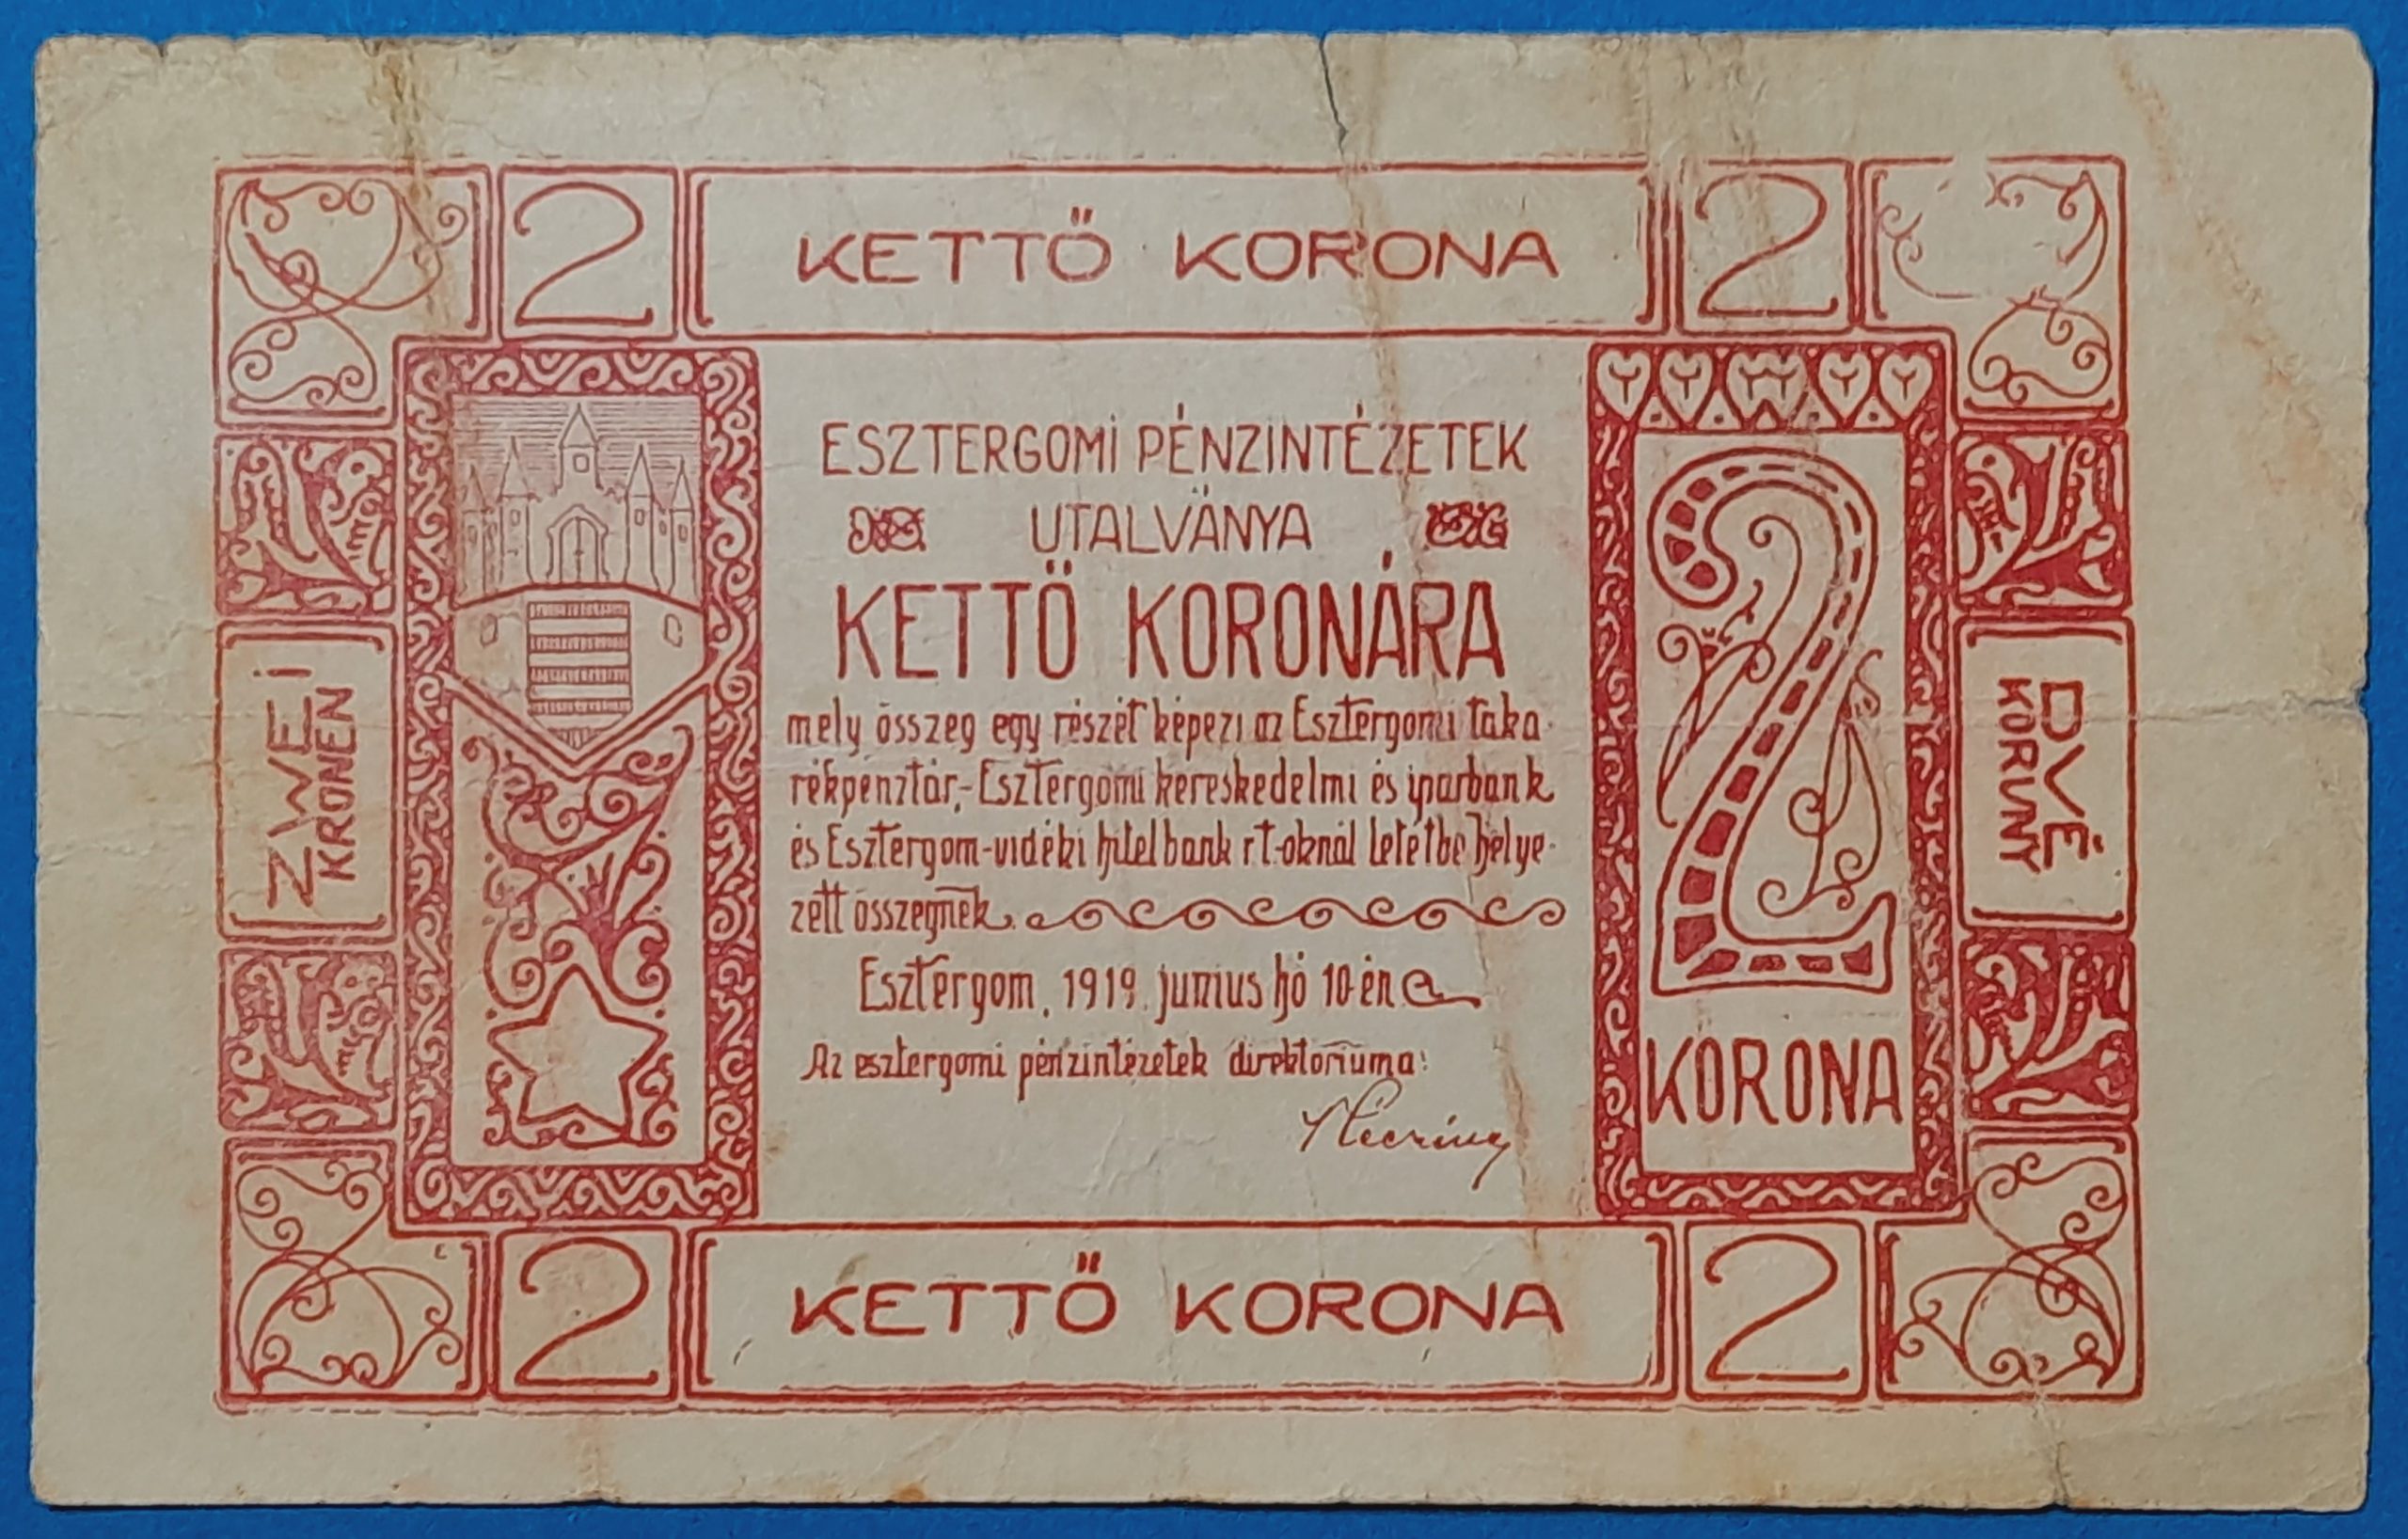 2 KETTŐ KORONA 2
ESZTERGOMI PÉNZINTÉZETEK
UTALVÁNYA
KETTŐ KORONÁRA
mely összeg egy részét képezi az Esztergomi taka-
rékpénztár,- Esztergomi kereskedelmi és iparbank
és Esztergom-vidéki hitelbank rt-oknál letétbe helye-
zett összegnek.
Esztergom, 1919. junius hó 10-én
Az esztergomi pénzintézetek direktoriuma:
ZWEI
KRONEN
2
KORONA
DVÉ
KORUNY
2 KETTŐ KORONA 2